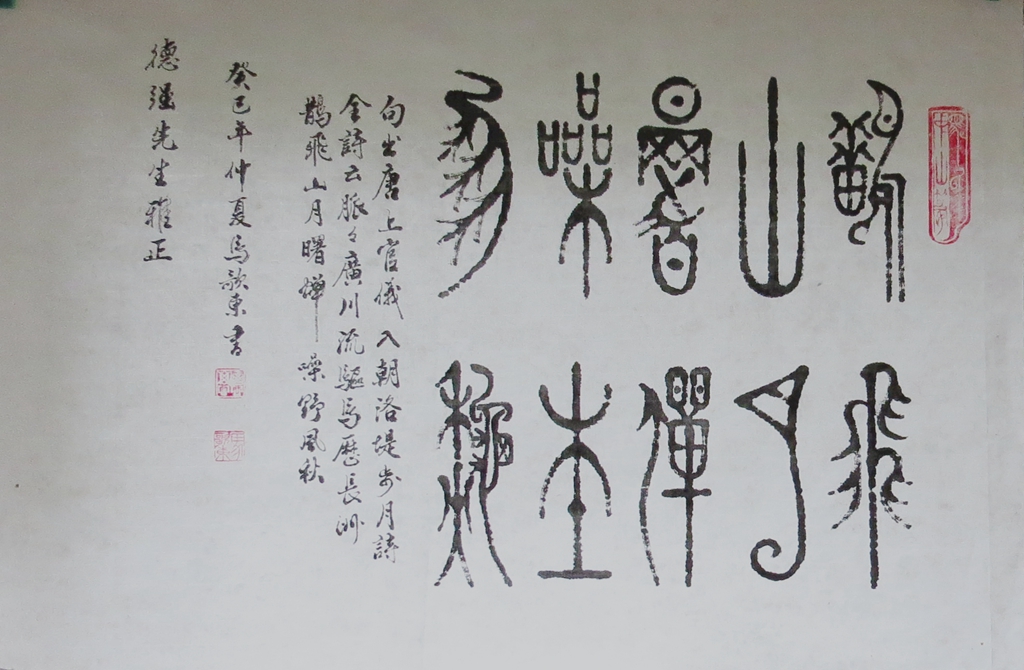 鵲飛
山月
曙蟬
噪野
風秋
句出唐上官儀入朝洛堤步月詩
全詩云脈々廣川流驅馬歷長洲
鵲飛山月曙蟬噪野風秋
癸巳年仲夏馬歌東書
德強先生雅正